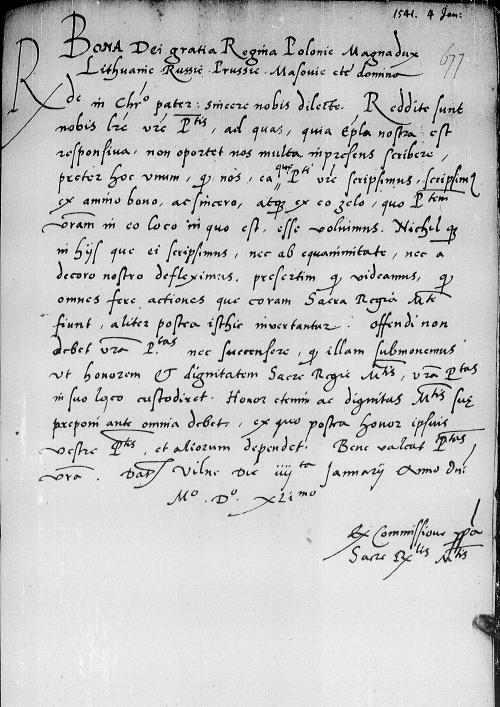 1541. 4 Jan:
677
BONA Dei gratia Regina Polonie Magnadux
Lithuanie Russie Prussie Masovie etc domina
Rde in Chro pater: sincere nobis dilecte. Reddite sunt
nobis lre vre Ptis, ad quas, quia epla nostra est
responsiva, non oportet nos multa inpresens scribere,
preter hoc unum, q nos, ea que Pti vre scripsimus, scripsim9
ex animo bono, ac sincero, atq ex eo zelo, quo Ptem
vram in eo loco in quo est, esse volumus. Nichel q
in hijs que ei scripsimus, nec ab equanimitate, nec a
decoro nostro defleximus. presertim q videamus, q
omnes fere actiones que coram Sacra Regia Mte
fiunt, aliter postea isthic invertantur. offendi non
debet vra P.tas nec succensere, q illam submonemus
ut honorem & dignitatem Sacre Regie Mtis, vra Ptas
in suo loco custodiret. Honor etenim ac dignitas Mtis sue
preponi ante omnia debet, ex quo postea honor ipsius
vestre Ptis, et aliorum dependet. Bene valeat Ptas
vra. Dat Vilne Die iiijta Januarij Anno dni
Mo. Do. XLimo
Ex Commissione ppa
Sacre Rlis Mtis